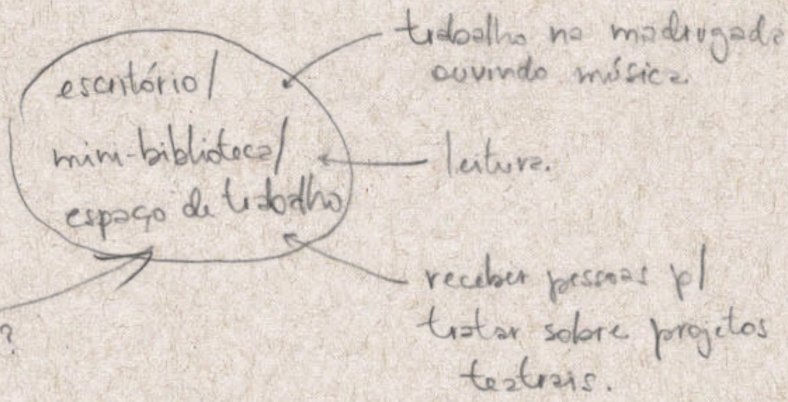 escritório/
mini-biblioteca/
espaço de trabalho
trabalho na madrugada
ouvindo música.
leitura.
receber pessoas p/
tratar sobre projetos
teatrais.
?